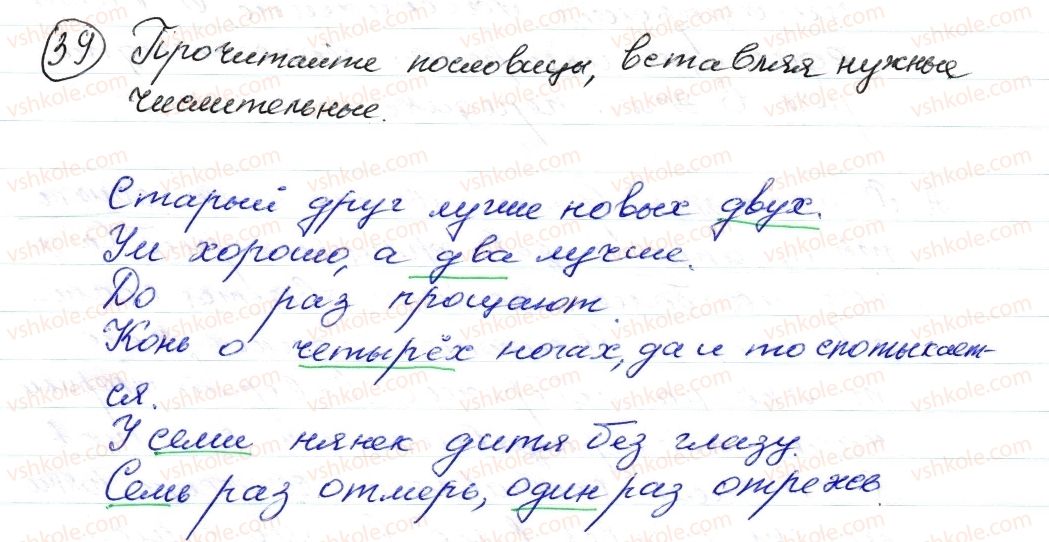 39 Прочитайте пословицы, вставляя нужные
числительные.
Старый друг лучше новых двух.
Ум хорошо, а два лучше.
До раз прощают.
Конь о четырёх ногах, да и то спотыкает-
ся.
У семи нянек дитя без глазу.
Семь раз отмерь, один раз отрежь.
vshkole.com